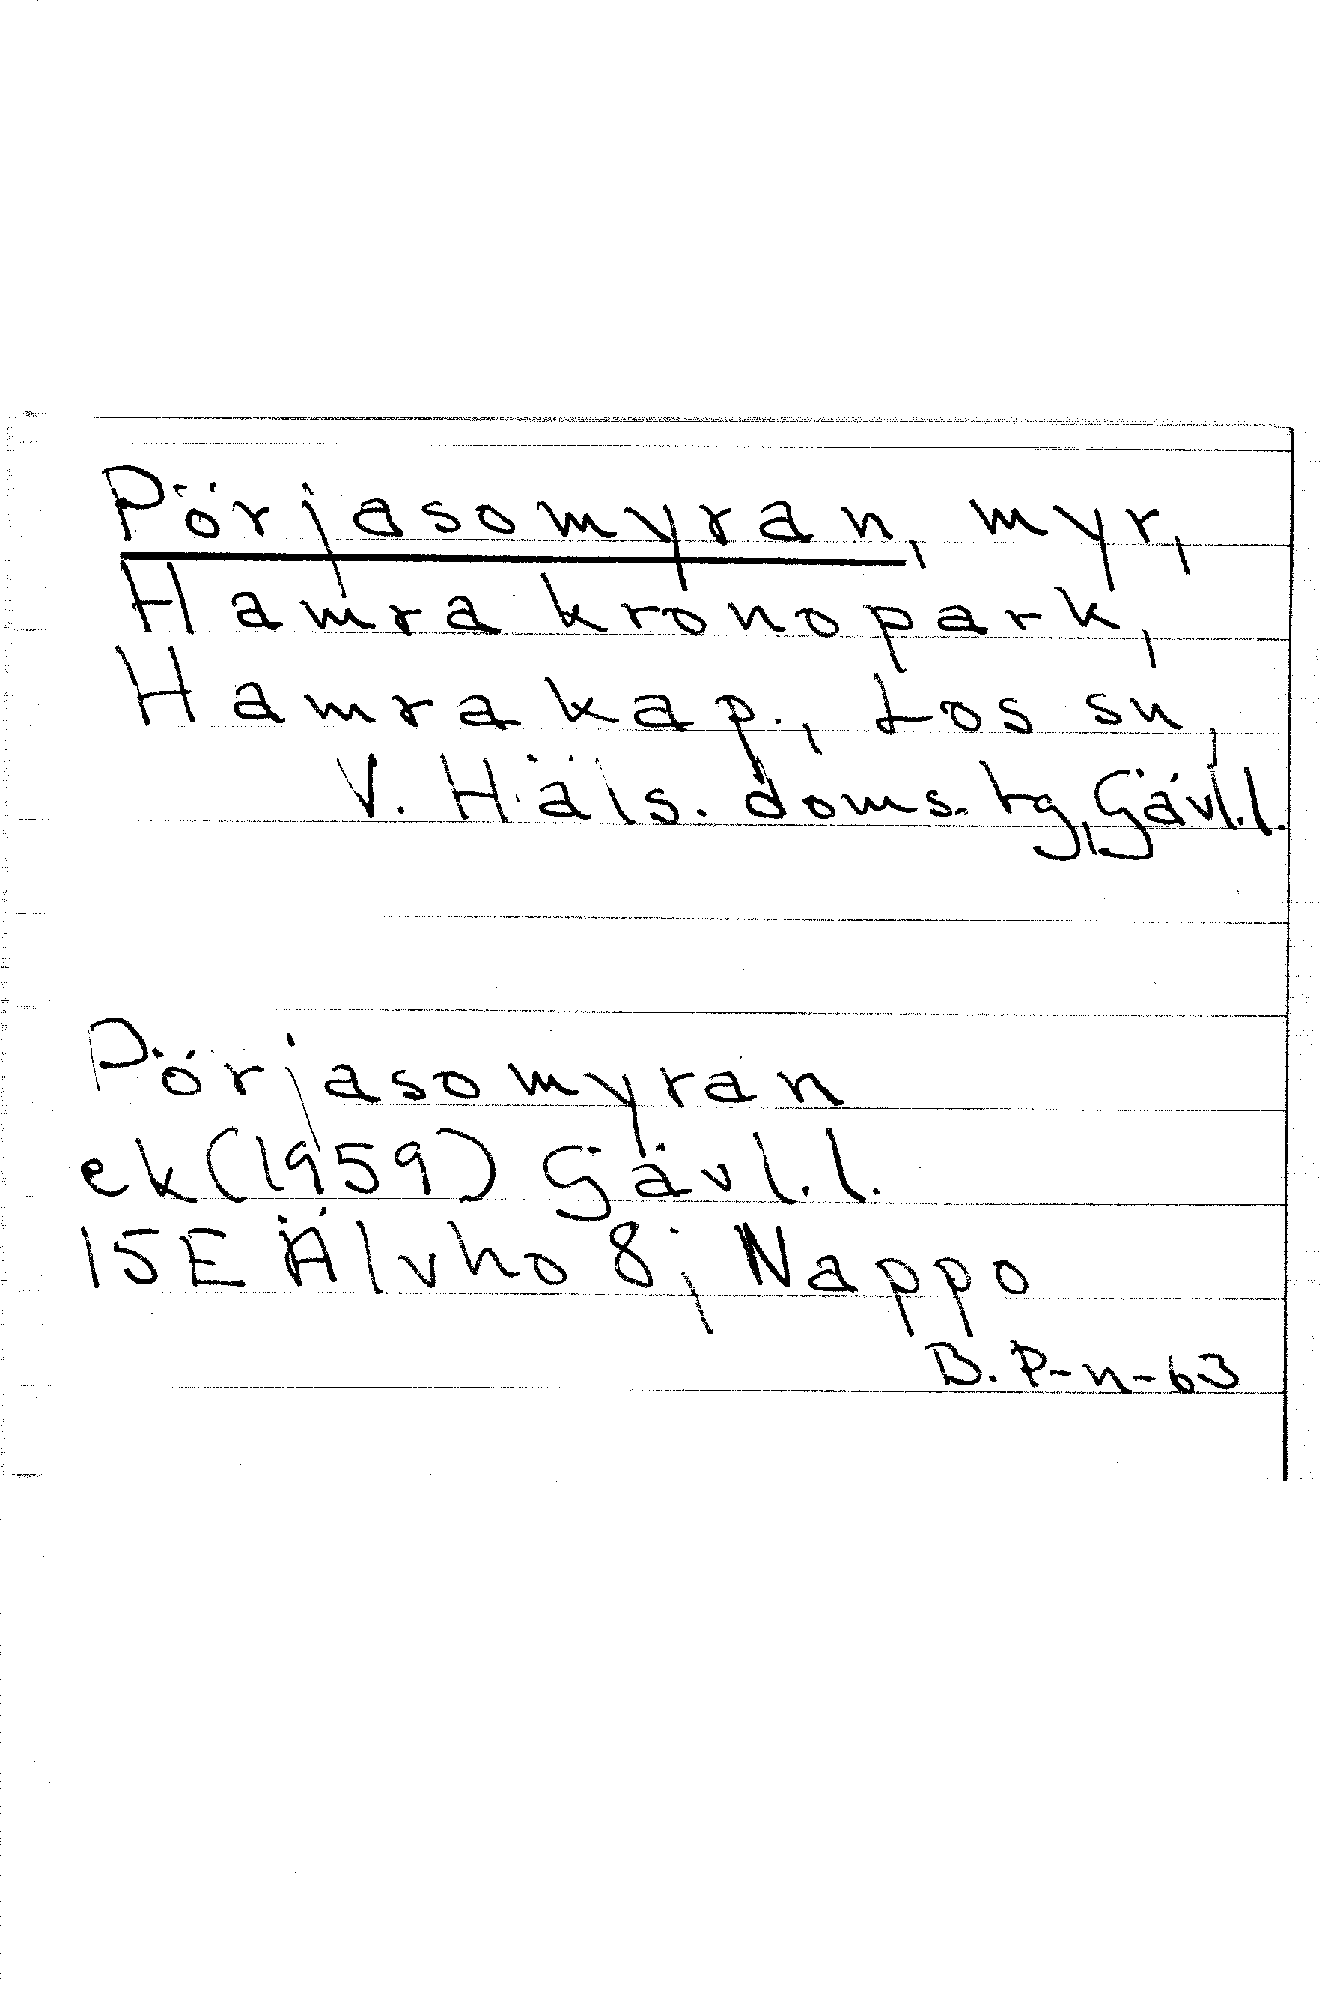 Pörjasomyran, myr,
Hamra kronopark,
Hamra kap., Los sn,
V. Häls. doms. tg, Gävl.l.
Pörjasomyran
ek (1959) Gävl.l.
15E Älvho 8; Nappo
B. P-n-63